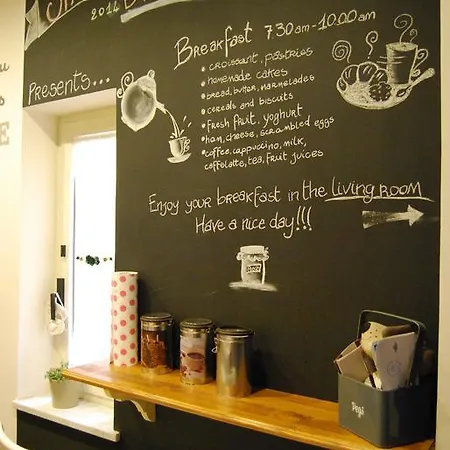 2014
Presents...
Breakfast 7.30am-10.00am
• croissant, pastries
• homemade cakes
• bread, butter, marmelades
• cereals and biscuits
• Fresh fruit, yoghurt
• ham, cheese, scrambled eggs
• coffee, cappuccino, milk,
caffelatte, tea, fruit juices
Enjoy your breakfast in the living room
Have a nice day!!!